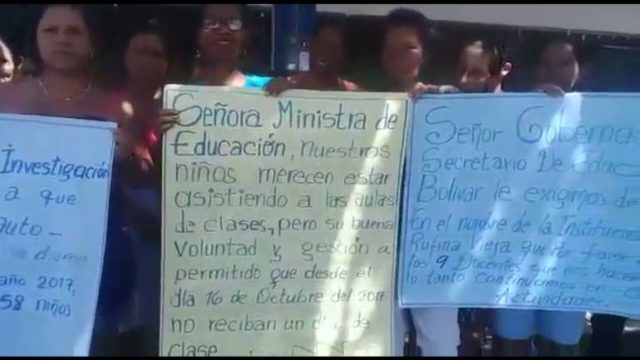 Investigación
a que
auto-
año 2017,
58 niños
Señora Ministra de
Educación, Nuestros
niños merecen estar
asistiendo a las aulas
de clases, pero su buena
Voluntad y gestión a
permitido que desde el
día 16 de Octubre del 2017
no reciban un día de
clase
Señor Goberna
Secretario De Educ
Bolivar le exigimos de
En el nombre de la Institucion
Rufina Viera que Por favor
los 9 Docentes que nos hacen
lo tanto continuamos en
Actividades.